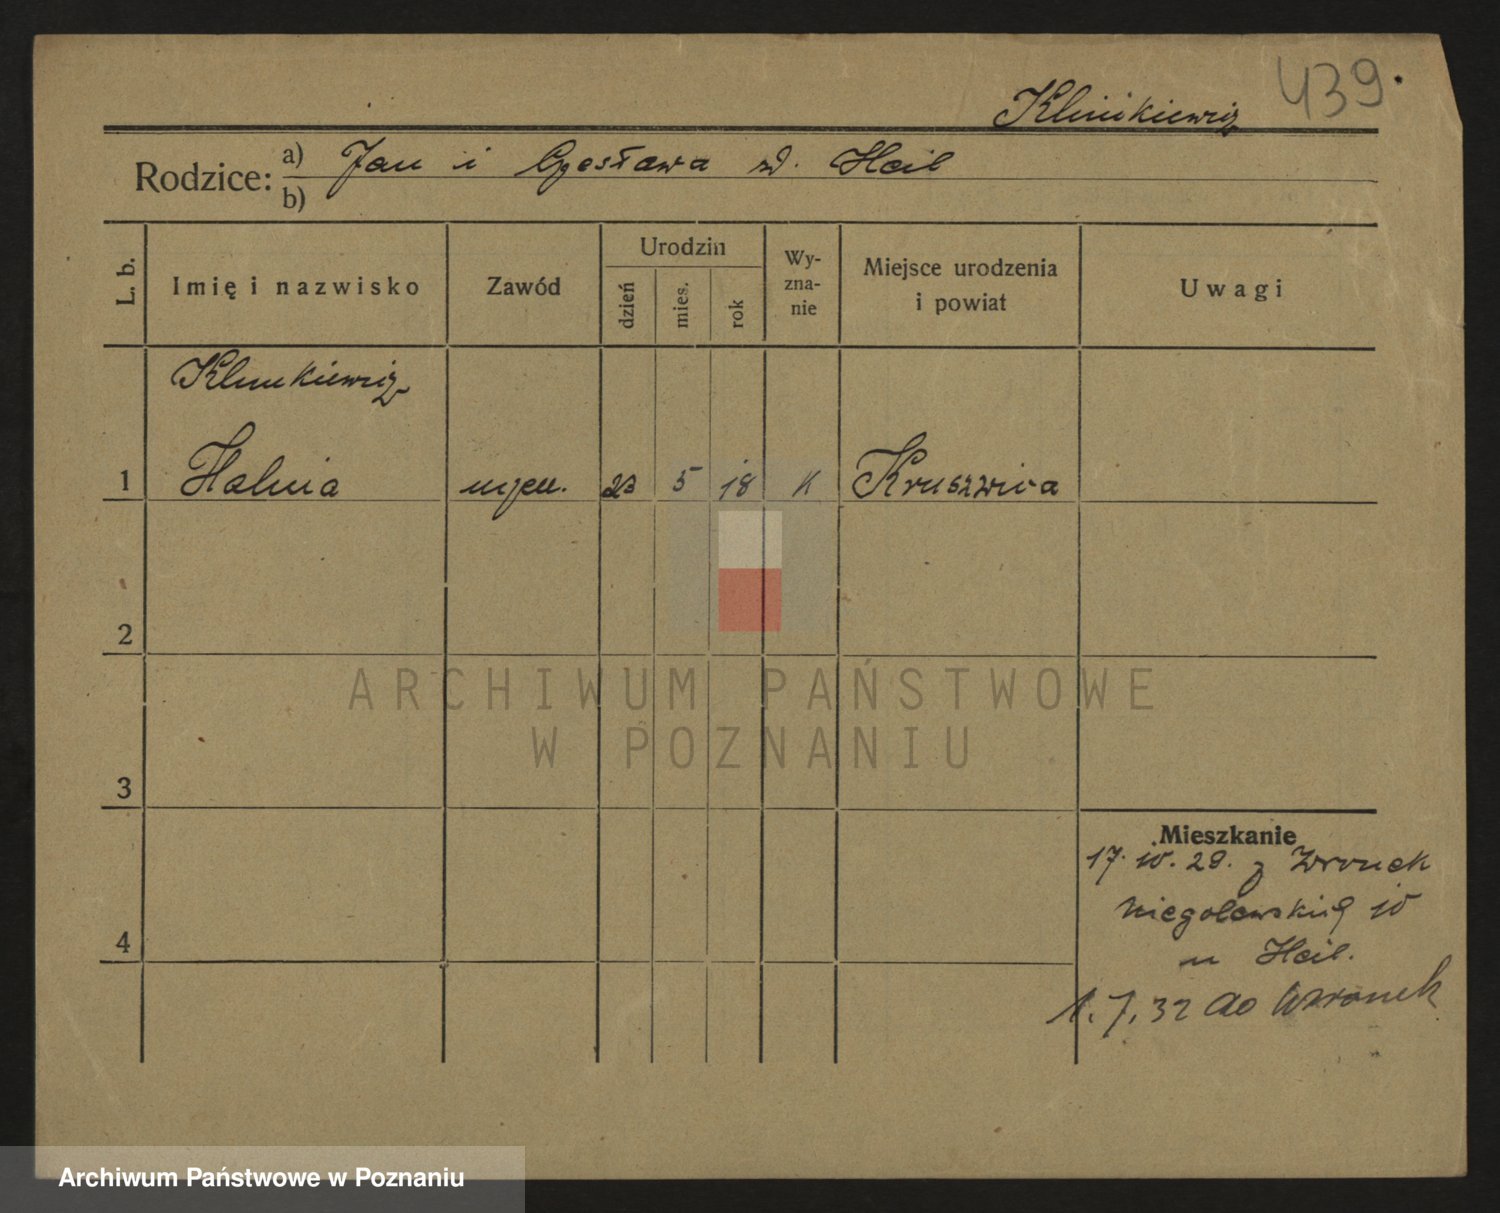 439.
Klimkiewicz
Rodzice: a) Jan i Czesława zd. Heil
b)
L. b.
Imię i nazwisko
Zawód
Urodzin
dzień
mies.
rok
Wy-
zna-
nie
Miejsce urodzenia
i powiat
Uwagi
Klimkiewicz
1 Halina 23 5 18 K Kruszwica
2
3
4
Mieszkanie
17. 10. 29. z Wronek
Niegolewskich 10
u Heil.
1. 7. 32 do Wronek
ARCHIWUM PAŃSTWOWE
W POZNANIU
Archiwum Państwowe w Poznaniu